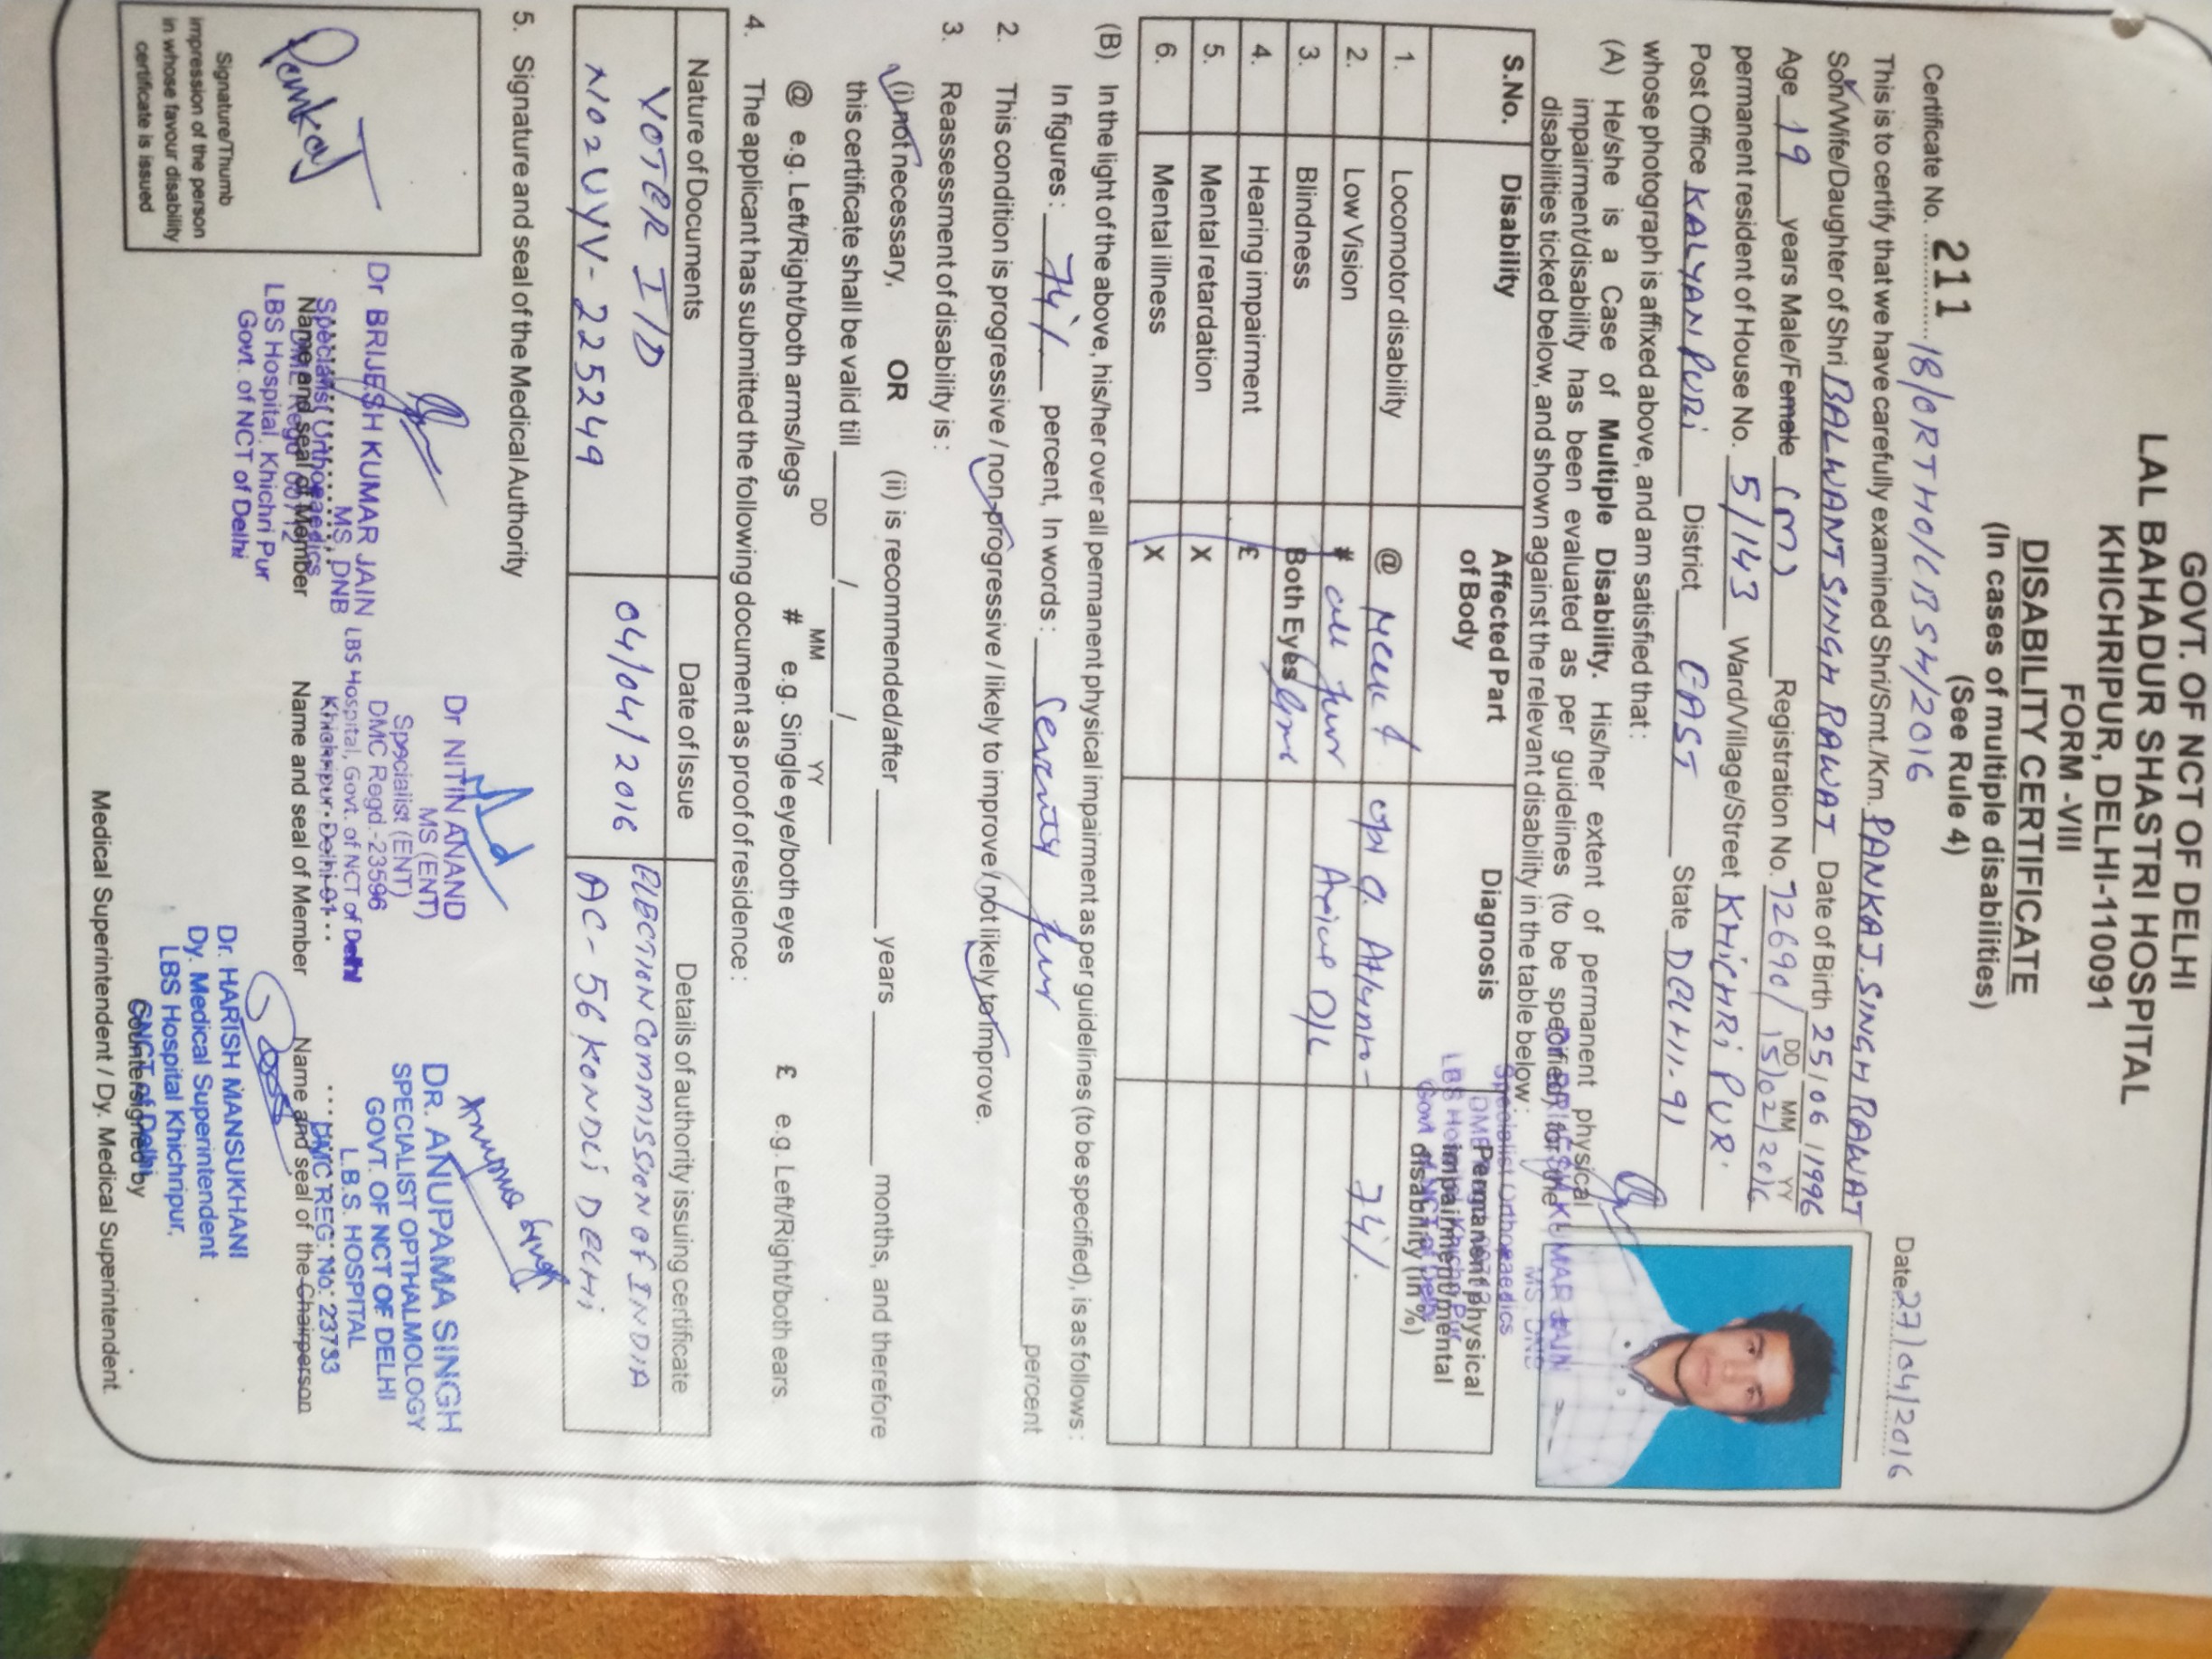 GOVT. OF NCT OF DELHI
LAL BAHADUR SHASTRI HOSPITAL
KHICHRIPUR, DELHI-110091
FORM -VIII
DISABILITY CERTIFICATE
(In cases of multiple disabilities)
(See Rule 4)
Certificate No. 211 18/ORTHO/LBSH/2016 Date 27/04/2016
This is to certify that we have carefully examined Shri/Smt./Km. PANKAJ.SINGH RAWAT
Son/Wife/Daughter of Shri BALWANT SINGH RAWAT Date of Birth 25/06/1996
DD MM YY
Age 19 years Male/Female (M) Registration No. 72690/15/02/2016
permanent resident of House No. 5/143 Ward/Village/Street KHICHRI PUR.
Post Office KALYANPURI District EAST State DELHI-91
whose photograph is affixed above, and am satisfied that :
(A) He/she is a Case of Multiple Disability. His/her extent of permanent physical
impairment/disability has been evaluated as per guidelines (to be specified) for the
disabilities ticked below, and shown against the relevant disability in the table below :
S.No. Disability Affected Part of Body Diagnosis Permanent physical impairment/mental disability (in %)
1. Locomotor disability @
2. Low Vision # 74%
3. Blindness Both Eyes
4. Hearing impairment £
5. Mental retardation X
6. Mental illness X
BRIJESH KUMAR JAIN
MS, DNB
Specialist Orthopaedics
LBS Hospital, Khichri Pur
Govt. of NCT of Delhi
(B) In the light of the above, his/her over all permanent physical impairment as per guidelines (to be specified), is as follows :
In figures : 74% percent, In words : Seventy four percent
2. This condition is progressive / non-progressive / likely to improve / not likely to improve.
3. Reassessment of disability is :
(i) not necessary, OR (ii) is recommended/after years months, and therefore
this certificate shall be valid till / /
DD MM YY
@ e.g. Left/Right/both arms/legs # e.g. Single eye/both eyes £ e.g. Left/Right/both ears.
4. The applicant has submitted the following document as proof of residence :
Nature of Documents Date of Issue Details of authority issuing certificate
VOTER I/D 04/04/2016 ELECTION COMMISSION OF INDIA
NO2UYV-225249 AC-56 KONDLI DELHI
5. Signature and seal of the Medical Authority
Pankaj
Signature/Thumb
impression of the person
in whose favour disability
certificate is issued
Dr BRIJESH KUMAR JAIN
MS, DNB
Specialist Orthopaedics
LBS Hospital, Khichri Pur
Govt. of NCT of Delhi
Name and seal of Member
Dr NITIN ANAND
MS (ENT)
Specialist (ENT)
DMC Regd.-23596
LBS Hospital, Govt. of NCT of Delhi
Khichripur, Delhi-91
Name and seal of Member
DR. ANUPAMA SINGH
SPECIALIST OPTHALMOLOGY
GOVT. OF NCT OF DELHI
L.B.S. HOSPITAL
DMC REG. No. 23733
Name and seal of the Chairperson
Dr. HARISH MANSUKHANI
Dy. Medical Superintendent
LBS Hospital Khichripur,
GNCT of Delhi
Countersigned by
Medical Superintendent / Dy. Medical Superintendent